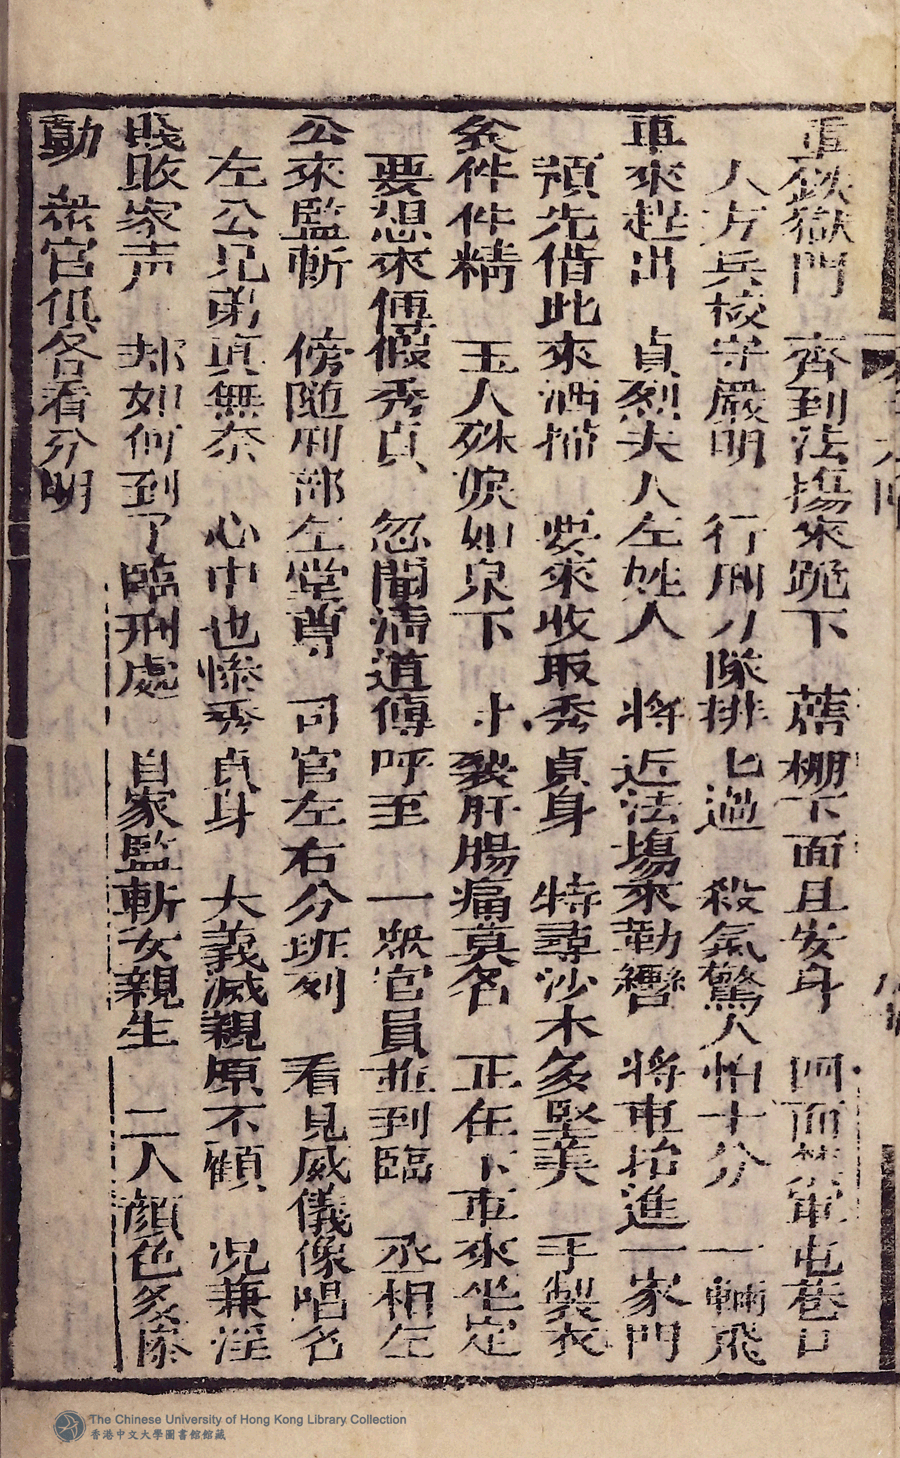 重鉄獄門 齊到法塲來跪下 蓆棚下面且安身 四面禁軍屯巷口
人方兵校守嚴明 行刑刀隊排七過 殺氣驚人怕十分 一輛飛
車來趕出 貞烈夫人左姓人 將近法塲來勒轡 將車抬進一家門
預先借此來洒掃 要來收取秀貞身 特尋沙木多堅美 手製衣
衾件件精 玉人殊淚如泉下 寸裂肝腸痛莫名 正在下車來坐定
要想來傳假秀貞 忽聞清道傳呼至 一眾官員並到臨 丞相左
公來監斬 傍隨刑部左堂尊 司官左右分班列 看見威儀像唱名
左公兄弟真無奈 心中也慘秀貞身 大義滅親原不顧 况兼淫
賤敗家声 却如何到了臨刑處 自家監斬女親生 二人顔色多慘
動 眾官俱各看分明
The Chinese University of Hong Kong Library Collection
香港中文大學圖書館館藏